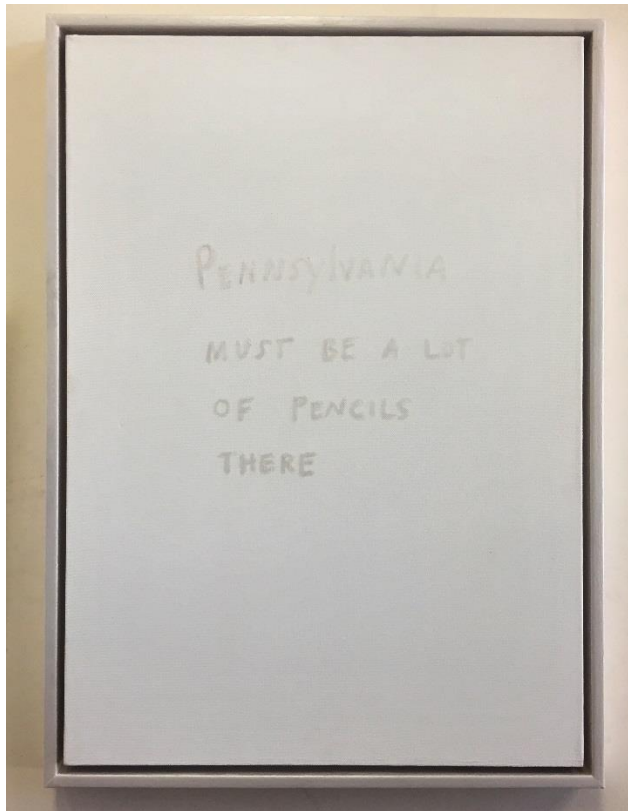 PENNSylVANIA
MUST BE A LOT
OF PENCILS
THERE